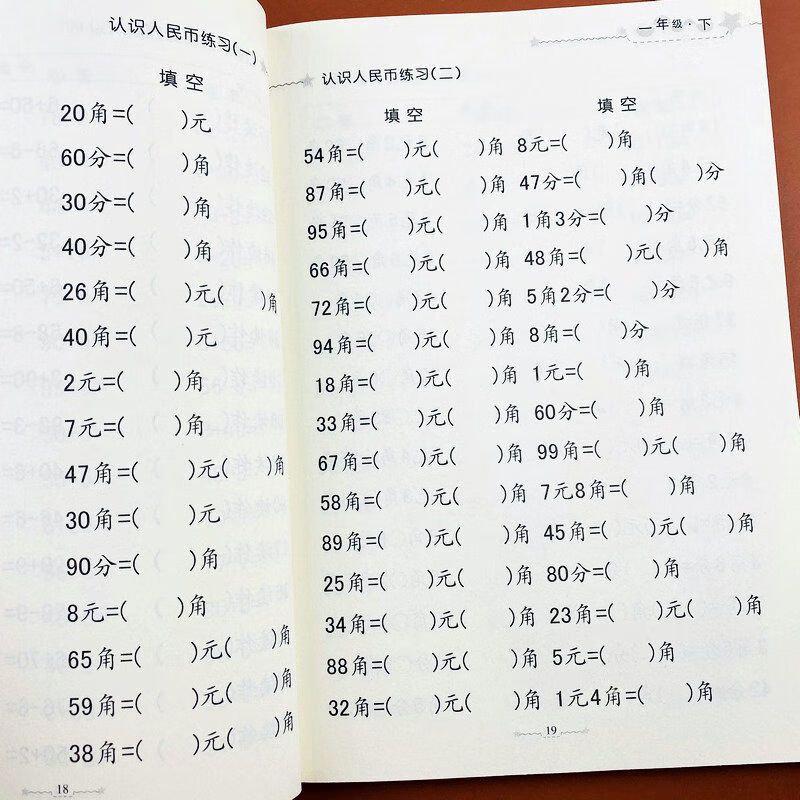 认识人民币练习(一)
填空
20角=( )元
60分=( )角
30分=( )角
40分=( )角
26角=( )元( )角
40角=( )元
2元=( )角
7元=( )角
47角=( )元( )角
30角=( )元
90分=( )角
8元=( )角
65角=( )元( )角
59角=( )元( )角
38角=( )元( )角
18
一年级·下
认识人民币练习(二)
填空
54角=( )元( )角
87角=( )元( )角
95角=( )元( )角
66角=( )元( )角
72角=( )元( )角
94角=( )元( )角
18角=( )元( )角
33角=( )元( )角
67角=( )元( )角
58角=( )元( )角
89角=( )元( )角
25角=( )元( )角
34角=( )元( )角
88角=( )元( )角
32角=( )元( )角
填空
8元=( )角
47分=( )角( )分
1角3分=( )分
48角=( )元( )角
5角2分=( )分
8角=( )分
1元=( )角
60分=( )角
99角=( )元( )角
7元8角=( )角
45角=( )元( )角
80分=( )角
23角=( )元( )角
5元=( )角
1元4角=( )角
19